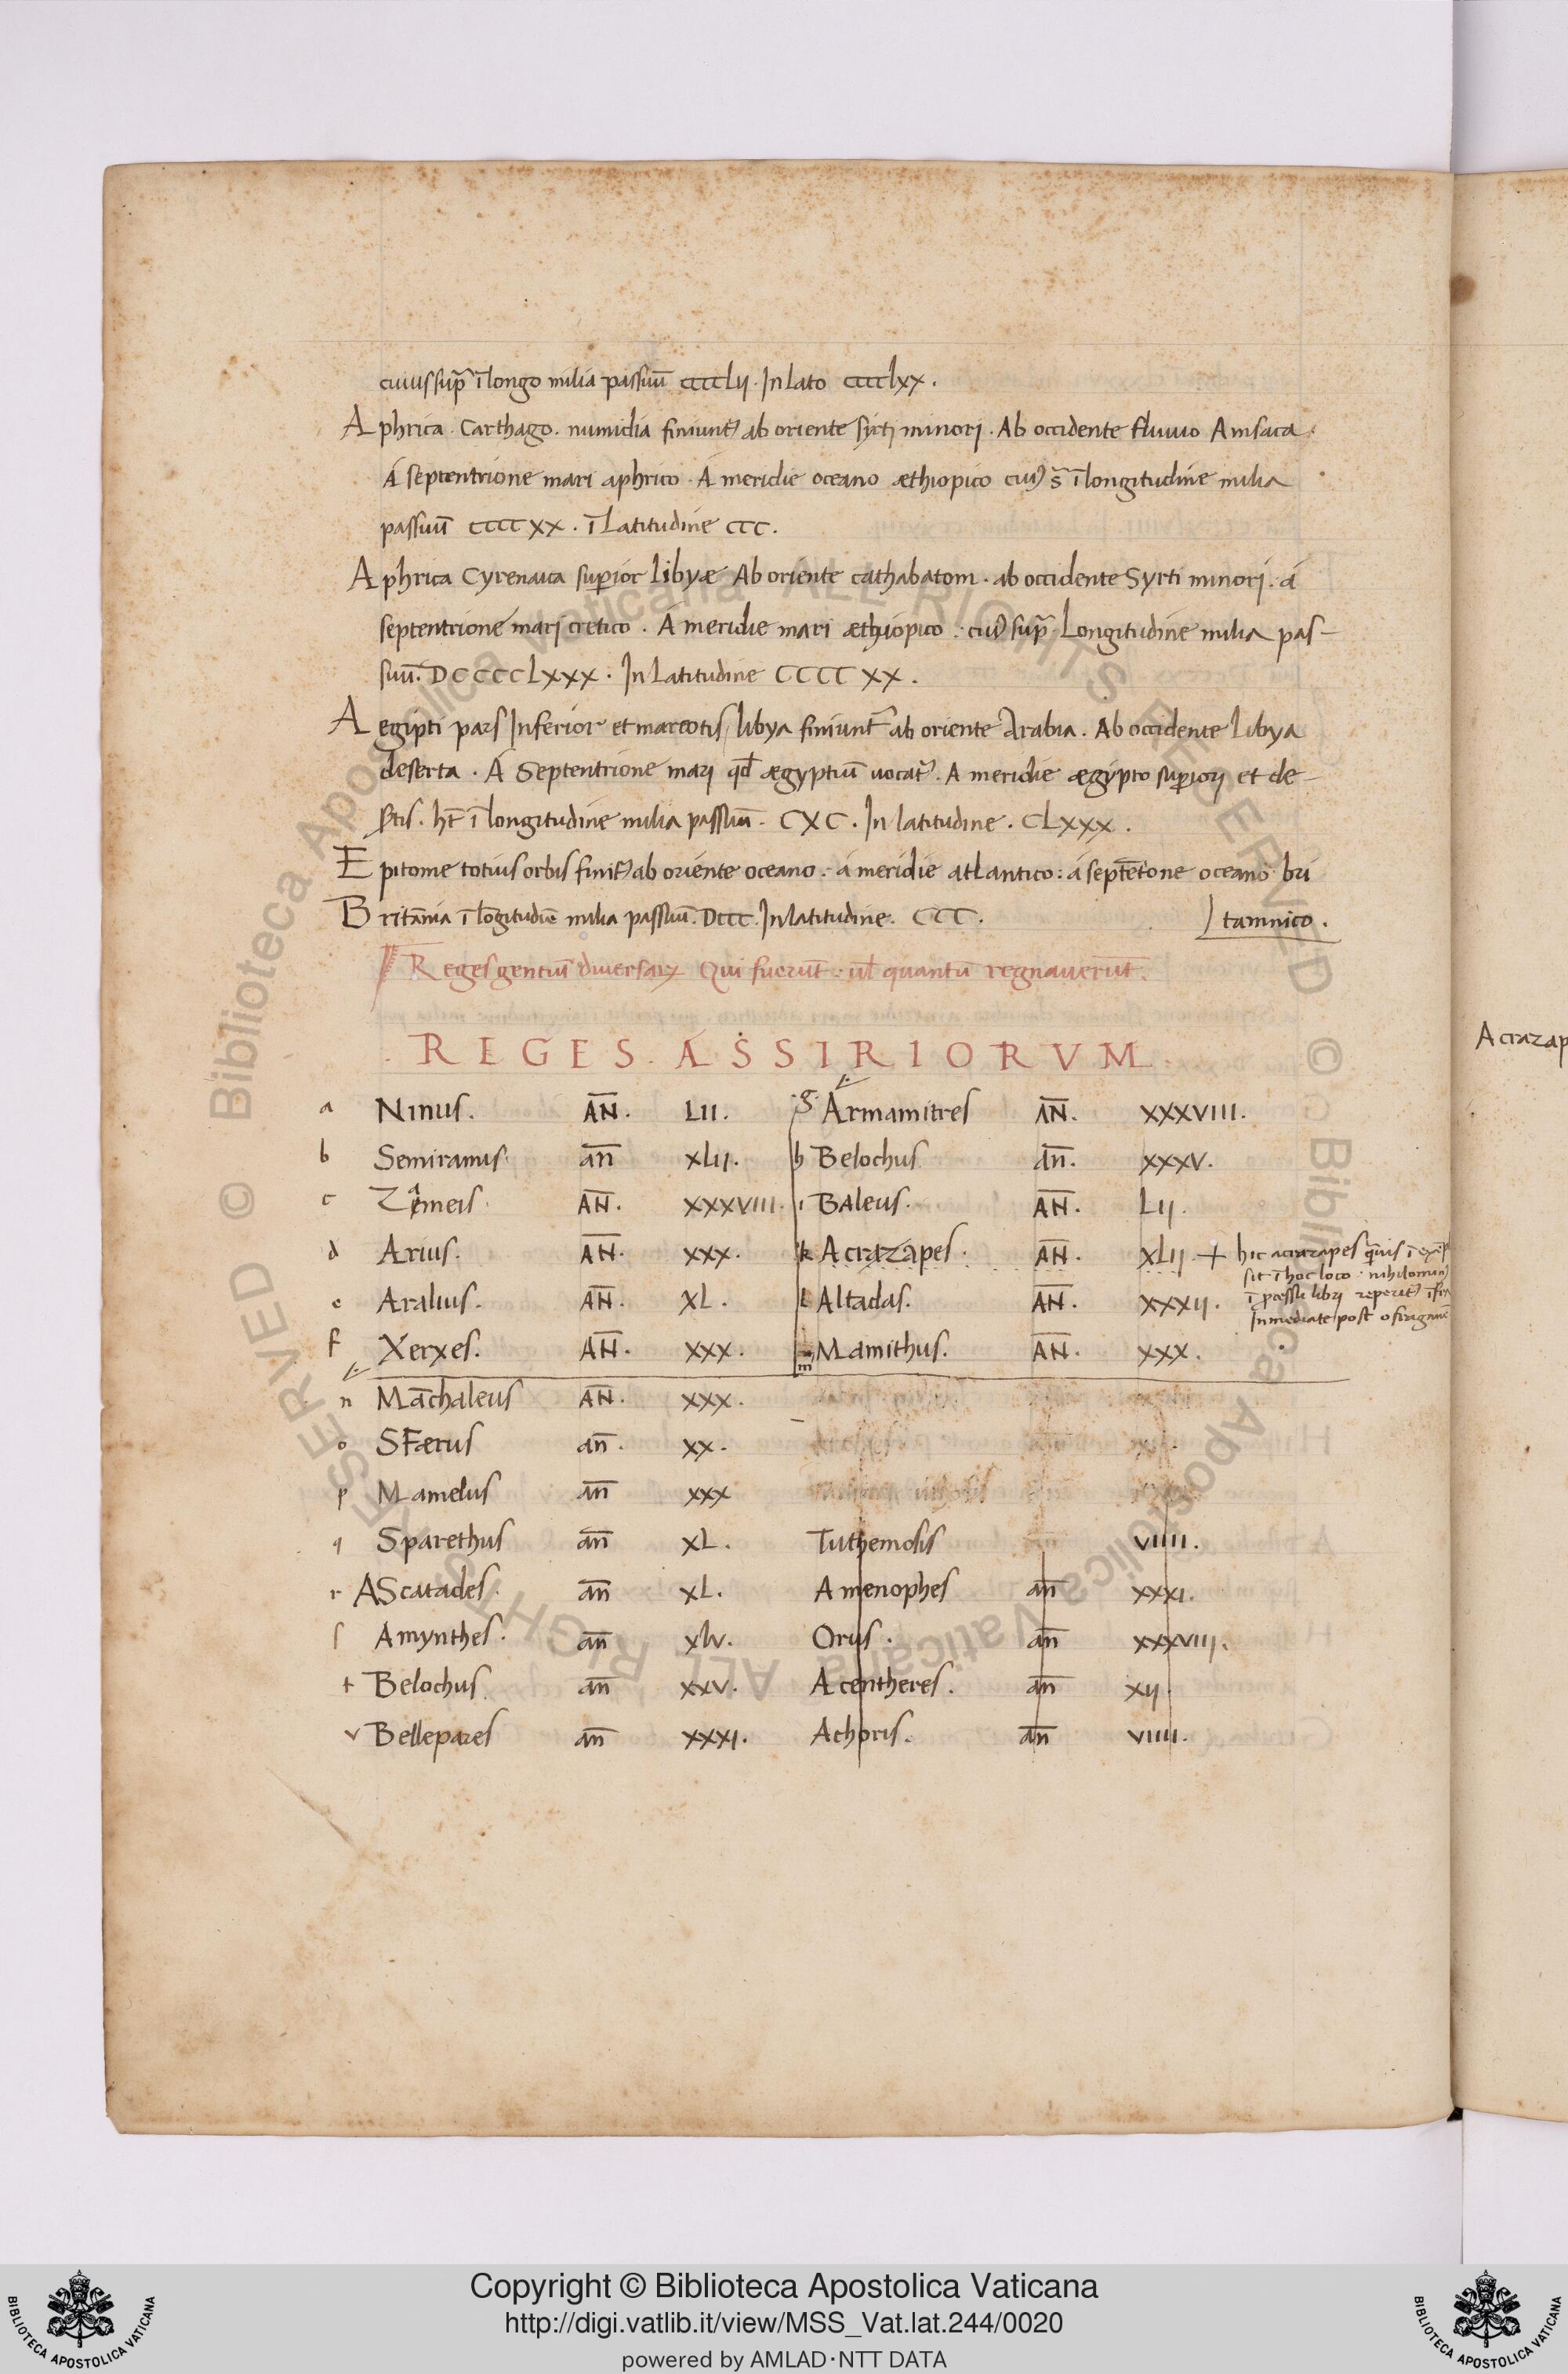 cuius sup̃ ĩ longo milia passuũ CCCCLII. In lato CCCCLXX.
Aphrica. Carthago. numidia finiunt᷒ ab oriente syrtj minorj. Ab occidente fluuio Amsaca.
Á septentrione mari aphrico. Á meridie oceano æthiopico cui᷒ s̃ ĩ longitudine milia
passuũ CCCCXX. ĩ Latitudine CCC.
Aphrica Cyrenaica superior Libyæ Ab oriente cathabatom. ab occidente Syrti minorj. á
septentrione marj cretico. Á meridie mari æthiopico. cui᷒ sup̃. Longitudine milia pas-
suũ. DCCCCLXXX. In Latitudine CCCCXX.
Aegipti pars Inferior et mareotis libya finiunt᷒ ab oriente Arabia. Ab occidente Libya
deserta. Á Septentrione mari qđ ægyptiũ uocat᷒. A meridie ægypto superiorj et de-
sertis. ht̃ ĩ longitudine milia passuum. CXC. In latitudine. CLXXX.
Epitome totius orbis finit᷒ ab oriente oceano. á meridie atlantico: á septẽtrione oceano bri
Britãnia ĩ lõgitudiẽ milia passuũ. DCCC. In latitudine. CCC. tannico.
Reges gentiũ diuersaꝝ Qui fuerũt. ul̃ quantũ regnauerũt.
REGES. ASSIRIORVM
a Ninus. AN̄. LII. g Armamitres AN̄. XXXVIII.
b Semiramis. an̄ XLII. h Belochus an̄. XXXV.
c Zameis. AN̄. XXXVIII. i Baleus. AN̄. LII.
d Arius. AN̄. XXX. k Acrazapes. AN̄. XLII + hic acrazapes
sit ĩ hoc loco. nihilomin᷒
e Aralius. AN̄. XL. l Altadas. AN̄. XXXII. ĩ processu libri reperit᷒
Inmediate post
f Xerxes. AN̄. XXX. m Mamithus. AN̄. XXX.
n Mãchaleus AN̄. XXX.
o SFærus an̄. XX.
p Mamelus an̄ XXX
q Sparethus an̄ XL. Tuthemosis VIIII.
r AScatades. an̄ XL. Amenophes an̄ XXXI.
s Amynthes. an̄ XLV. Orus. an̄ XXXVIII.
t Belochus an̄ XXV. Acentheres. an̄ XII.
v Bellepares an̄ XXXI. Achoris. an̄ VIIII.
Acrazap
Copyright © Biblioteca Apostolica Vaticana
http://digi.vatlib.it/view/MSS_Vat.lat.244/0020
powered by AMLAD·NTT DATA
BIBLIOTECA APOSTOLICA VATICANA
BIBLIOTECA APOSTOLICA VATICANA